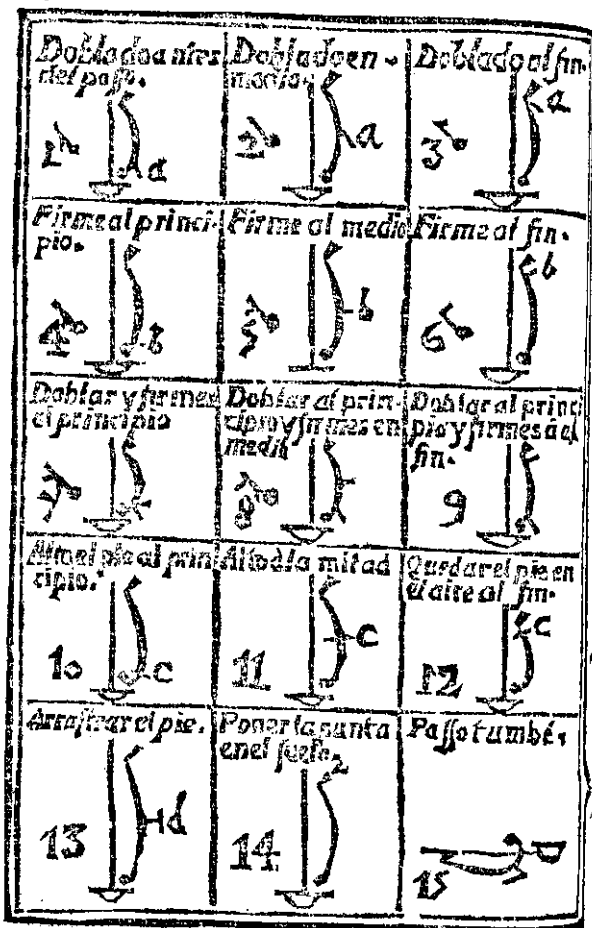 Doblado antes
del passo.
1 a
Doblado en
medio.
2 a
Doblado al fin.
3 a
Firme al princi-
pio.
4 b
Firme al medio
5 b
Firme al fin.
6 b
Doblar y firmes
el principio
7
Doblar al prin-
cipio y firmes en
medio
8
Doblar al princi
pio y firmes á el
fin.
9
el pie al prin
cipio.
10 c
la mitad
11 c
Quedar el pie en
el aire al fin.
12 c
Arrastrar el pie.
13 d
Poner la punta
en el suelo.
14
Passo tumbé.
15